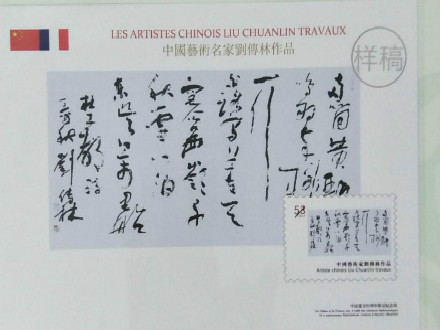 LES ARTISTES CHINOIS LIU CHUANLIN TRAVAUX
中國藝術名家劉傳林作品
样稿
兩箇黃鸝
鳴翠柳
一行
白鷺上青天
窗含西嶺千
秋雪門泊
東吳萬里船
杜工部詩
劉傳林
58
中國藝術家劉傳林作品
Artiste chinois Liu Chuanlin travaux